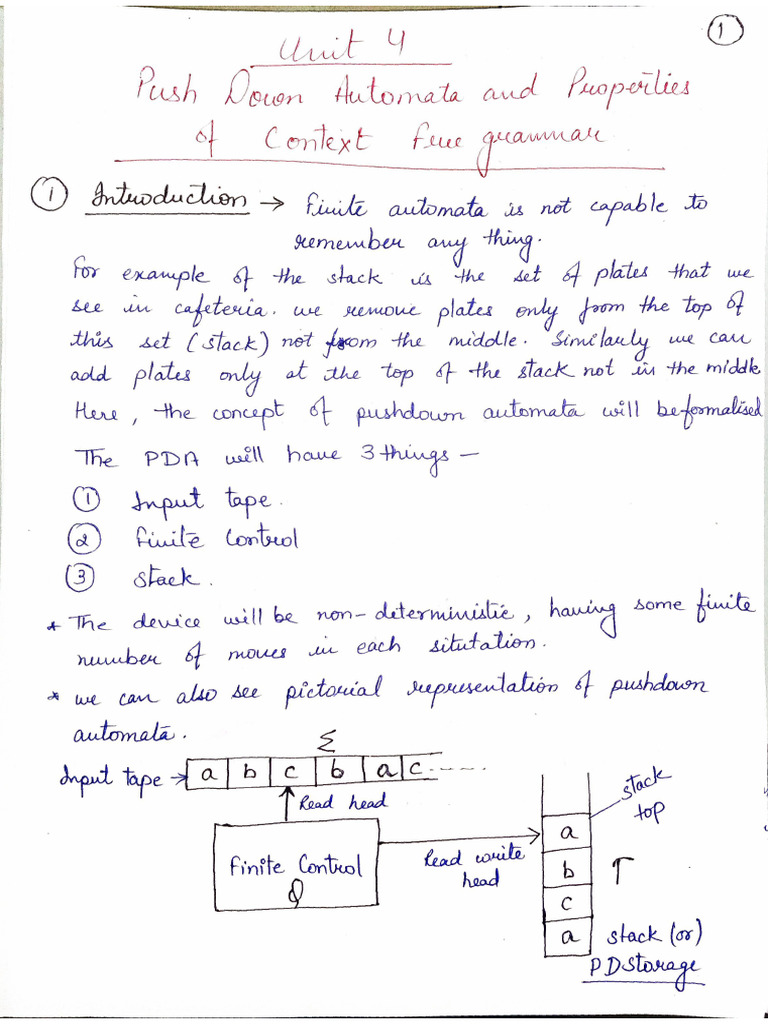 1
Unit 4
Push Down Automata and Properties
of Context free grammar
1 Introduction → finite automata is not capable to
remember any thing.
For example of the stack is the set of plates that we
see in cafeteria. we remove plates only from the top of
this set (stack) not from the middle. Similarly we can
add plates only at the top of the stack not in the middle
Here, the concept of pushdown automata will be formalised
The PDA will have 3 things –
1 Input tape.
2 finite Control
3 stack.
* The device will be non-deterministic, having some finite
number of moves in each situtation.
* we can also see pictorial representation of pushdown
automata.
Σ
Input tape → a b c b a c ......
Read head
stack
top
finite Control
Q
Read write
head
a
b
c
a
Γ
stack (or)
PDStorage